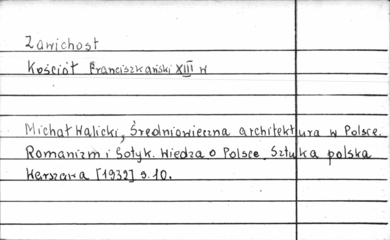 Zawichost
Kościół Franciszkański XIII w
Michał Walicki, Średniowieczna architektura w Polsce.
Romanizm i Gotyk. Wiedza o Polsce, Sztuka polska
Warszawa [1932] s. 10.